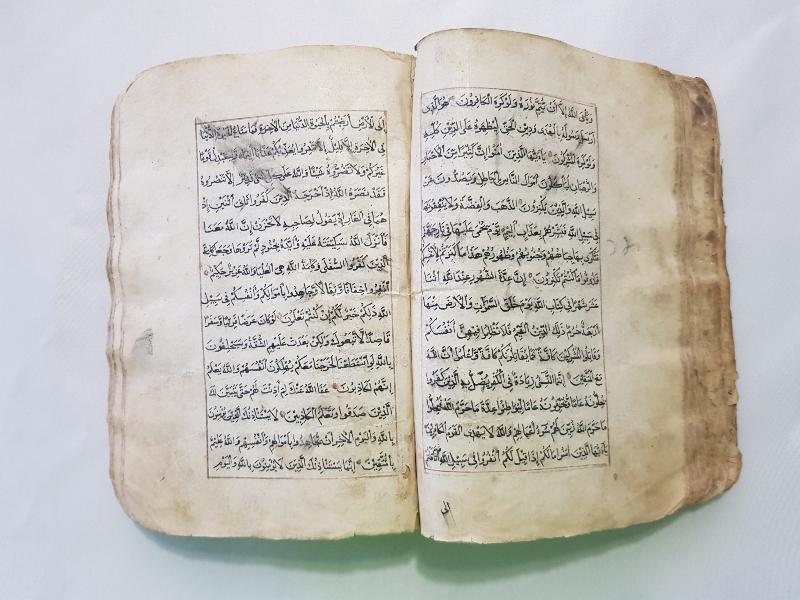 وَيَأْبَى اللّٰهُ إِلَّا أَنْ يُتِمَّ نُورَهُ وَلَوْ كَرِهَ الْكَافِرُونَ هُوَ الَّذِي
أَرْسَلَ رَسُولَهُ بِالْهُدَى وَدِينِ الْحَقِّ لِيُظْهِرَهُ عَلَى الدِّينِ كُلِّهِ
وَلَوْ كَرِهَ الْمُشْرِكُونَ يَا أَيُّهَا الَّذِينَ آمَنُوا إِنَّ كَثِيرًا مِنَ الْأَحْبَارِ
وَالرُّهْبَانِ لَيَأْكُلُونَ أَمْوَالَ النَّاسِ بِالْبَاطِلِ وَيَصُدُّونَ عَنْ
سَبِيلِ اللّٰهِ وَالَّذِينَ يَكْنِزُونَ الذَّهَبَ وَالْفِضَّةَ وَلَا يُنْفِقُونَهَا
فِي سَبِيلِ اللّٰهِ فَبَشِّرْهُمْ بِعَذَابٍ أَلِيمٍ يَوْمَ يُحْمَى عَلَيْهَا فِي نَارِ جَهَنَّمَ
فَتُكْوَى بِهَا جِبَاهُهُمْ وَجُنُوبُهُمْ وَظُهُورُهُمْ هَذَا مَا كَنَزْتُمْ لِأَنْفُسِكُمْ
فَذُوقُوا مَا كُنْتُمْ تَكْنِزُونَ إِنَّ عِدَّةَ الشُّهُورِ عِنْدَ اللّٰهِ اثْنَا
عَشَرَ شَهْرًا فِي كِتَابِ اللّٰهِ يَوْمَ خَلَقَ السَّمَوَاتِ وَالْأَرْضَ مِنْهَا
أَرْبَعَةٌ حُرُمٌ ذَلِكَ الدِّينُ الْقَيِّمُ فَلَا تَظْلِمُوا فِيهِنَّ أَنْفُسَكُمْ
وَقَاتِلُوا الْمُشْرِكِينَ كَافَّةً كَمَا يُقَاتِلُونَكُمْ كَافَّةً وَاعْلَمُوا أَنَّ اللّٰهَ
مَعَ الْمُتَّقِينَ إِنَّمَا النَّسِيءُ زِيَادَةٌ فِي الْكُفْرِ يُضَلُّ بِهِ الَّذِينَ كَفَرُوا
يُحِلُّونَهُ عَامًا وَيُحَرِّمُونَهُ عَامًا لِيُوَاطِئُوا عِدَّةَ مَا حَرَّمَ اللّٰهُ فَيُحِلُّوا
مَا حَرَّمَ اللّٰهُ زُيِّنَ لَهُمْ سُوءُ أَعْمَالِهِمْ وَاللّٰهُ لَا يَهْدِي الْقَوْمَ الْكَافِرِينَ
يَا أَيُّهَا الَّذِينَ آمَنُوا مَا لَكُمْ إِذَا قِيلَ لَكُمُ انْفِرُوا فِي سَبِيلِ اللّٰهِ اثَّاقَلْتُمْ
إلى
إِلَى الْأَرْضِ أَرَضِيتُمْ بِالْحَيَوةِ الدُّنْيَا مِنَ الْآخِرَةِ فَمَا مَتَاعُ الْحَيَوةِ الدُّنْيَا
فِي الْآخِرَةِ إِلَّا قَلِيلٌ إِلَّا تَنْفِرُوا يُعَذِّبْكُمْ عَذَابًا أَلِيمًا وَيَسْتَبْدِلْ قَوْمًا
غَيْرَكُمْ وَلَا تَضُرُّوهُ شَيْئًا وَاللّٰهُ عَلَى كُلِّ شَيْءٍ قَدِيرٌ إِلَّا تَنْصُرُوهُ
فَقَدْ نَصَرَهُ اللّٰهُ إِذْ أَخْرَجَهُ الَّذِينَ كَفَرُوا ثَانِيَ اثْنَيْنِ إِذْ
هُمَا فِي الْغَارِ إِذْ يَقُولُ لِصَاحِبِهِ لَا تَحْزَنْ إِنَّ اللّٰهَ مَعَنَا
فَأَنْزَلَ اللّٰهُ سَكِينَتَهُ عَلَيْهِ وَأَيَّدَهُ بِجُنُودٍ لَمْ تَرَوْهَا وَجَعَلَ كَلِمَةَ
الَّذِينَ كَفَرُوا السُّفْلَى وَكَلِمَةُ اللّٰهِ هِيَ الْعُلْيَا وَاللّٰهُ عَزِيزٌ حَكِيمٌ
انْفِرُوا خِفَافًا وَثِقَالًا وَجَاهِدُوا بِأَمْوَالِكُمْ وَأَنْفُسِكُمْ فِي سَبِيلِ
اللّٰهِ ذَلِكُمْ خَيْرٌ لَكُمْ إِنْ كُنْتُمْ تَعْلَمُونَ لَوْ كَانَ عَرَضًا قَرِيبًا وَسَفَرًا
قَاصِدًا لَاتَّبَعُوكَ وَلَكِنْ بَعُدَتْ عَلَيْهِمُ الشُّقَّةُ وَسَيَحْلِفُونَ
بِاللّٰهِ لَوِ اسْتَطَعْنَا لَخَرَجْنَا مَعَكُمْ يُهْلِكُونَ أَنْفُسَهُمْ وَاللّٰهُ يَعْلَمُ
إِنَّهُمْ لَكَاذِبُونَ عَفَا اللّٰهُ عَنْكَ لِمَ أَذِنْتَ لَهُمْ حَتَّى يَتَبَيَّنَ لَكَ
الَّذِينَ صَدَقُوا وَتَعْلَمَ الْكَاذِبِينَ لَا يَسْتَأْذِنُكَ الَّذِينَ يُؤْمِنُونَ
بِاللّٰهِ وَالْيَوْمِ الْآخِرِ أَنْ يُجَاهِدُوا بِأَمْوَالِهِمْ وَأَنْفُسِهِمْ وَاللّٰهُ عَلِيمٌ
بِالْمُتَّقِينَ إِنَّمَا يَسْتَأْذِنُكَ الَّذِينَ لَا يُؤْمِنُونَ بِاللّٰهِ وَالْيَوْمِ